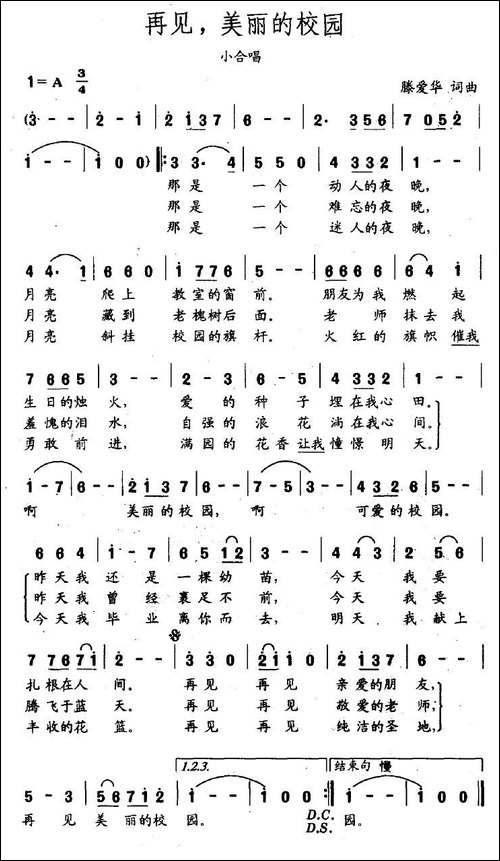 再见，美丽的校园
小合唱
1=A 3/4
滕爱华 词曲
(3̇ - - | 2̇ - 1̇ | 2̇ 1̇ 3 7 | 6 - - | 2· 3 5 6 | 7 0 5 2 |
1̇ - - | 1̇ 0 0) ‖: 3 3· 4 | 5 5 0 | 4 3 3 2 | 1 - - |
那是 一个 动人的夜晚，
那是 一个 难忘的夜晚，
那是 一个 迷人的夜晚，
4 4· 1 | 6 6 0 | 1̇ 7 7 6 | 5 - - | 6 6 6 6 | 6 4 1 |
月亮 爬上 教室的窗前。 朋友为我 燃起
月亮 藏到 老槐树后面。 老师抹去我
月亮 斜挂 校园的旗杆。 火红的旗帜催我
7 6 6 5 | 3 - - | 2 - 2 | 6 - 5 | 4 3 3 2 | 1 - - |
生日的烛火， 爱的种子埋在我心田。
羞愧的泪水， 自强的浪花淌在我心间。
勇敢前进， 满园的花香让我憧憬明天。
1̇ - 7 | 6 - - | 2̇ 1̇ 3 7 | 6 - - | 7 - 5 | 3 - - | 4 3 2 6 | 5 - - |
啊 美丽的校园， 啊 可爱的校园。
6 6 4 | 1̇ - 7 | 6 5 1 2 | 3 - - | 4 4 3 | 2 5 6 |
昨天我 还是一棵幼苗， 今天 我要
昨天我 曾经裹足不前， 今天 我要
今天我 毕业离你而去， 明天 我献上
7 7 6 7 1̇ | 2̇ - - | 3̇ 3̇ 0 | 2̇ 1̇ 1̇ 0 | 2̇ 1̇ 3 7 | 6 - - |
扎根在人间。 再见 再见 亲爱的朋友，
腾飞于蓝天。 再见 再见 敬爱的老师，
丰收的花篮。 再见 再见 纯洁的圣地，
1.2.3.
结束句 慢
5 - 3 | 5 6 7 1̇ 2̇ | 1̇ - - | 1̇ 0 0 :‖ 1̇ - - | 1̇ 0 0 ‖
再见美丽的校园。 D.C. 园。
D.S.